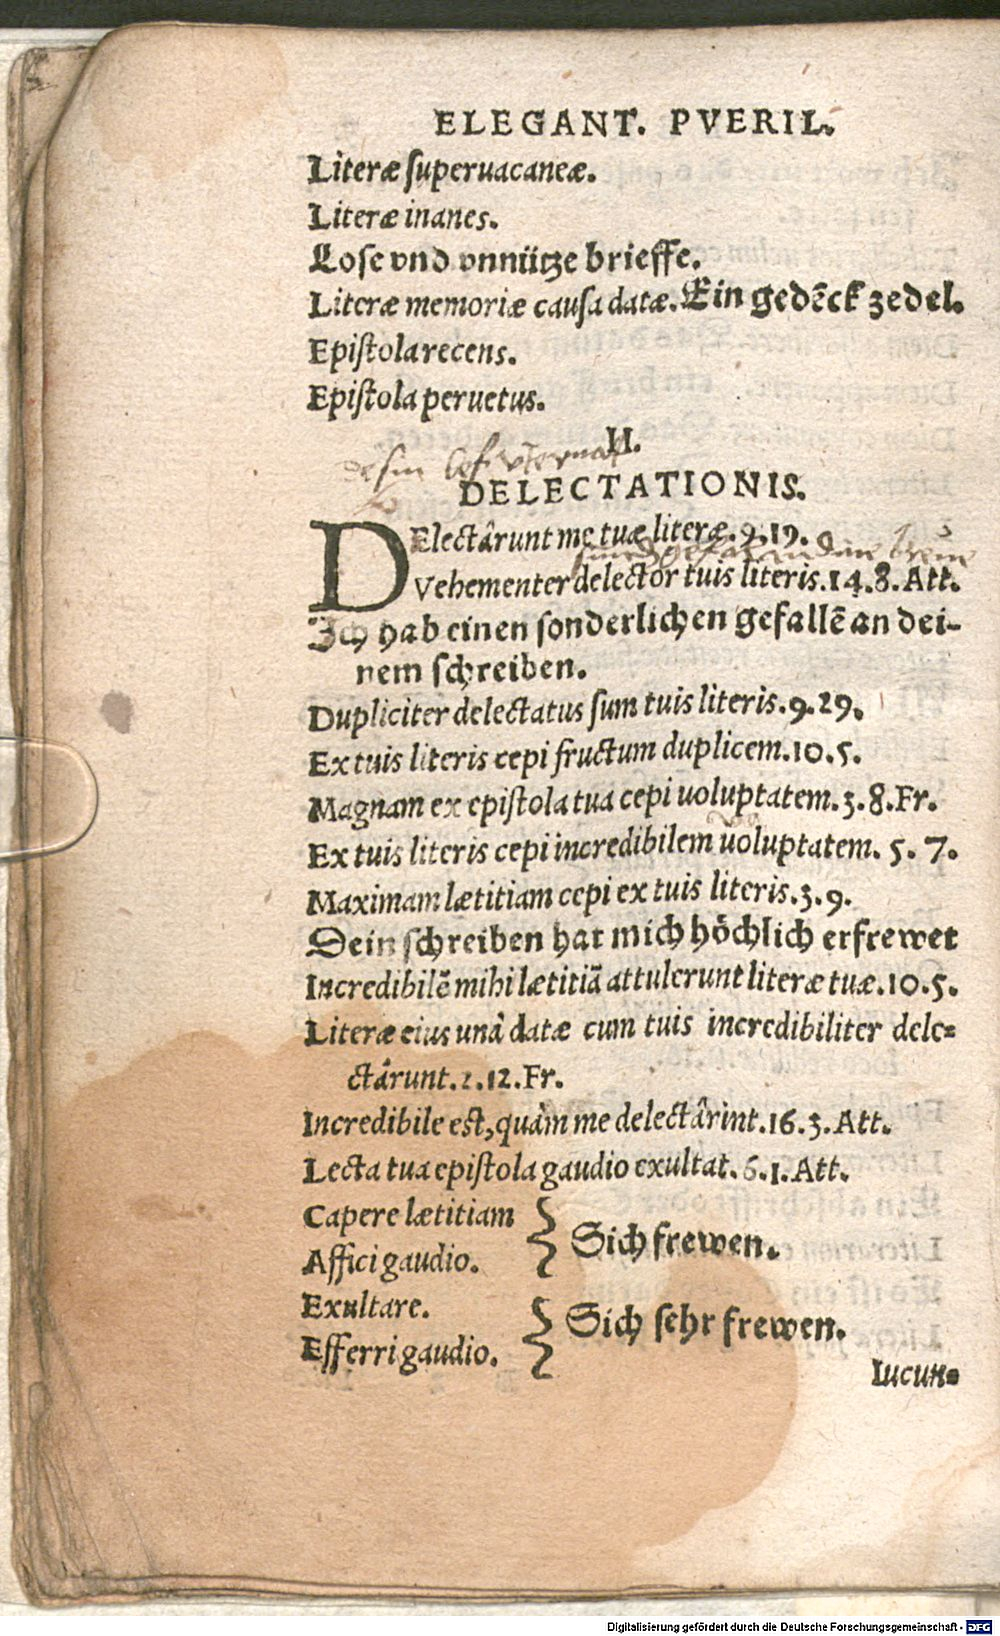 ELEGANT. PVERIL.
Literæ superuacaneæ.
Literæ inanes.
Lose vnd vnnütze brieffe.
Literæ memoriæ causa datæ. Ein gedẽck zedel.
Epistola recens.
Epistola peruetus.
II.
DELECTATIONIS.
DElectârunt me tuæ literæ. 9. 19.
Vehementer delector tuis literis. 14. 8. Att.
Ich hab einen sonderlichen gefallẽ an dei-
nem schreiben.
Dupliciter delectatus sum tuis literis. 9. 29.
Ex tuis literis cepi fructum duplicem. 10. 5.
Magnam ex epistola tua cepi uoluptatem. 3. 8. Fr.
Ex tuis literis cepi incredibilem uoluptatem. 5. 7.
Maximam lætitiam cepi ex tuis literis. 3. 9.
Dein schreiben hat mich höchlich erfrewet
Incredibilẽ mihi lætitiã attulerunt literæ tuæ. 10. 5.
Literæ eius unâ datæ cum tuis incredibiliter dele=
ctârunt. 2. 12. Fr.
Incredibile est, quàm me delectârint. 16. 3. Att.
Lecta tua epistola gaudio exultat. 6. 1. Att.
Capere lætitiam
Affici gaudio. } Sich frewen.
Exultare.
Efferri gaudio. } Sich sehr frewen.
Iucun=
Digitalisierung gefördert durch die Deutsche Forschungsgemeinschaft - DFG